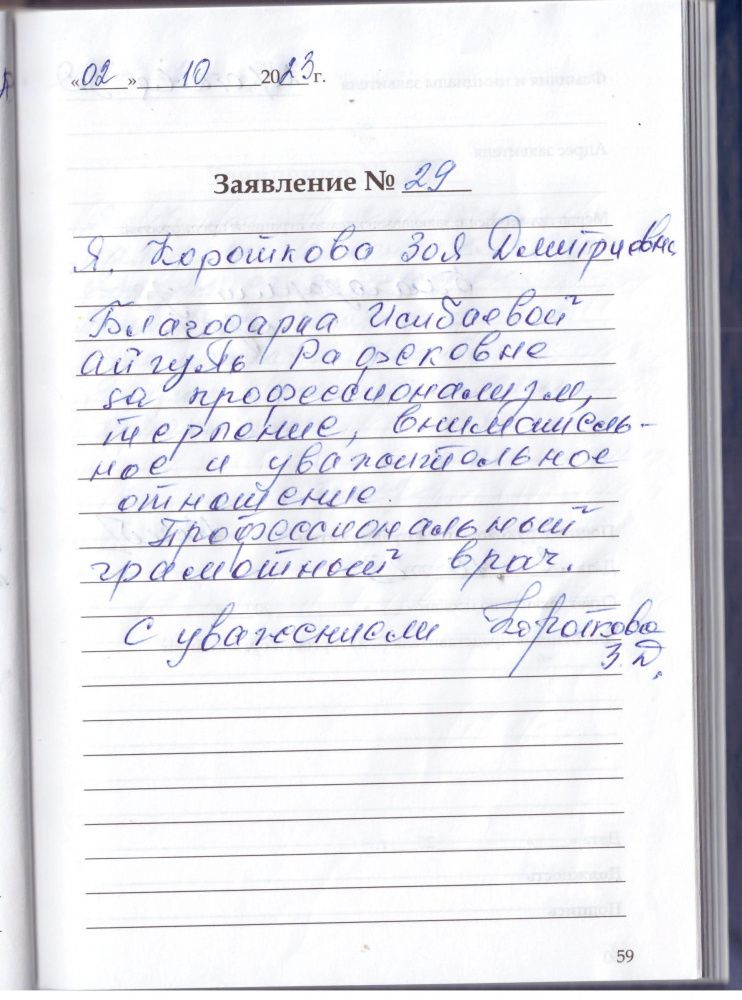 «02» 10 2023 г.
Заявление № 29
Я, Короткова Зоя Дмитриевна
Благодарна Исибаевой
Айгуль Рафековне
за профессионализм,
терпение, вниматель-
ное и уважительное
отношение.
Профессиональный
грамотный врач.
С уважением Короткова
З.Д.
59